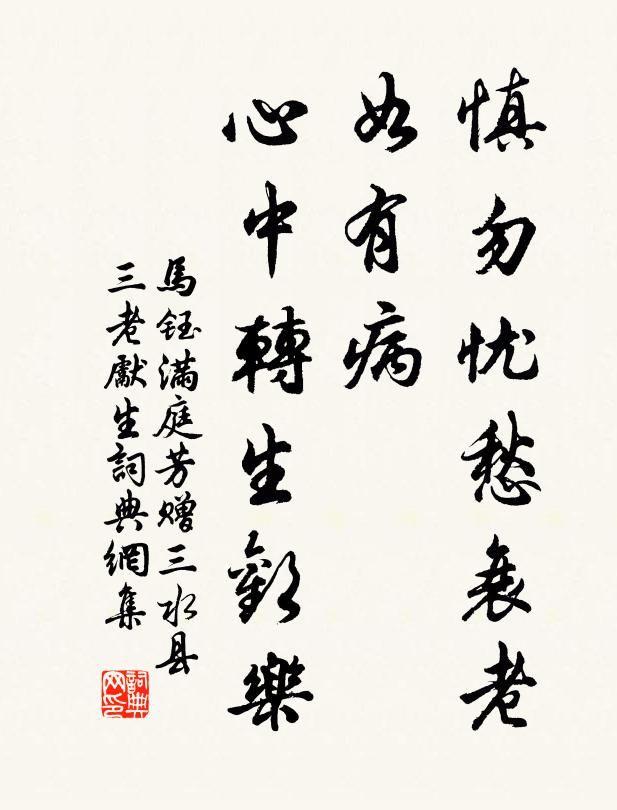 慎勿忧愁衰老
如有病
心中轉生歡樂
馬鈺滿庭芳赠三水县
三老獻生詞典網集
詞典
网印